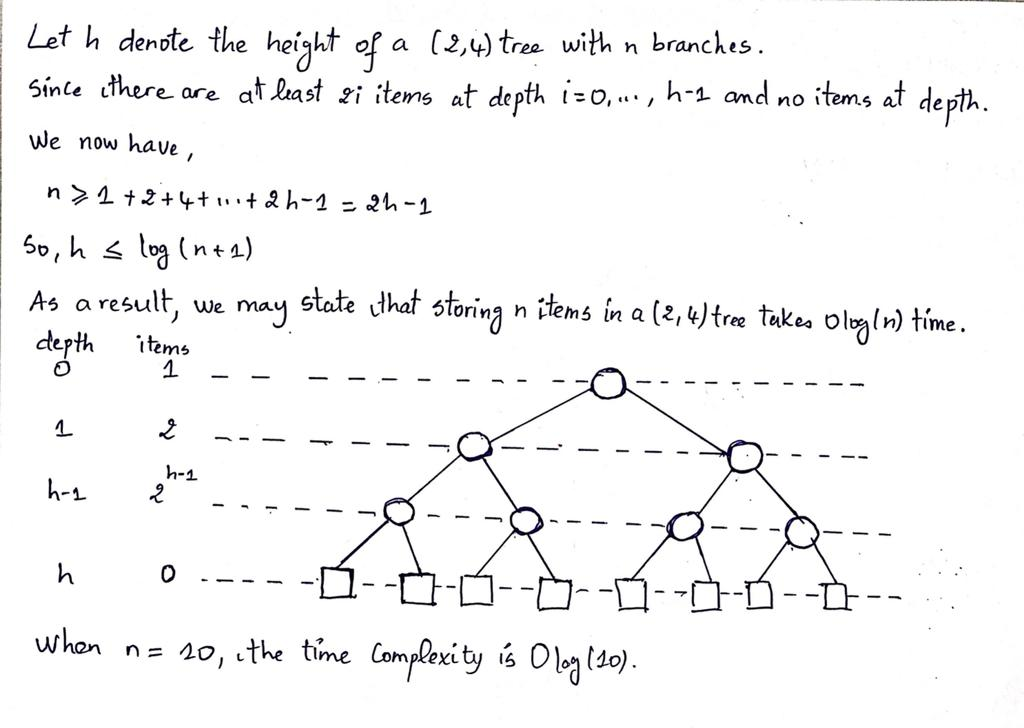 Let h denote the height of a (2,4) tree with n branches.
Since there are at least 2i items at depth i=0,..., h-1 and no items at depth.
We now have,
n ⩾ 1 + 2 + 4 + ... + 2h-1 = 2h-1
So, h ≤ log (n+1)
As a result, we may state that storing n items in a (2,4) tree takes Olog(n) time.
depth items
0 1
1 2
h-1 2^h-1
h 0
When n = 10, the time Complexity is Olog(10).